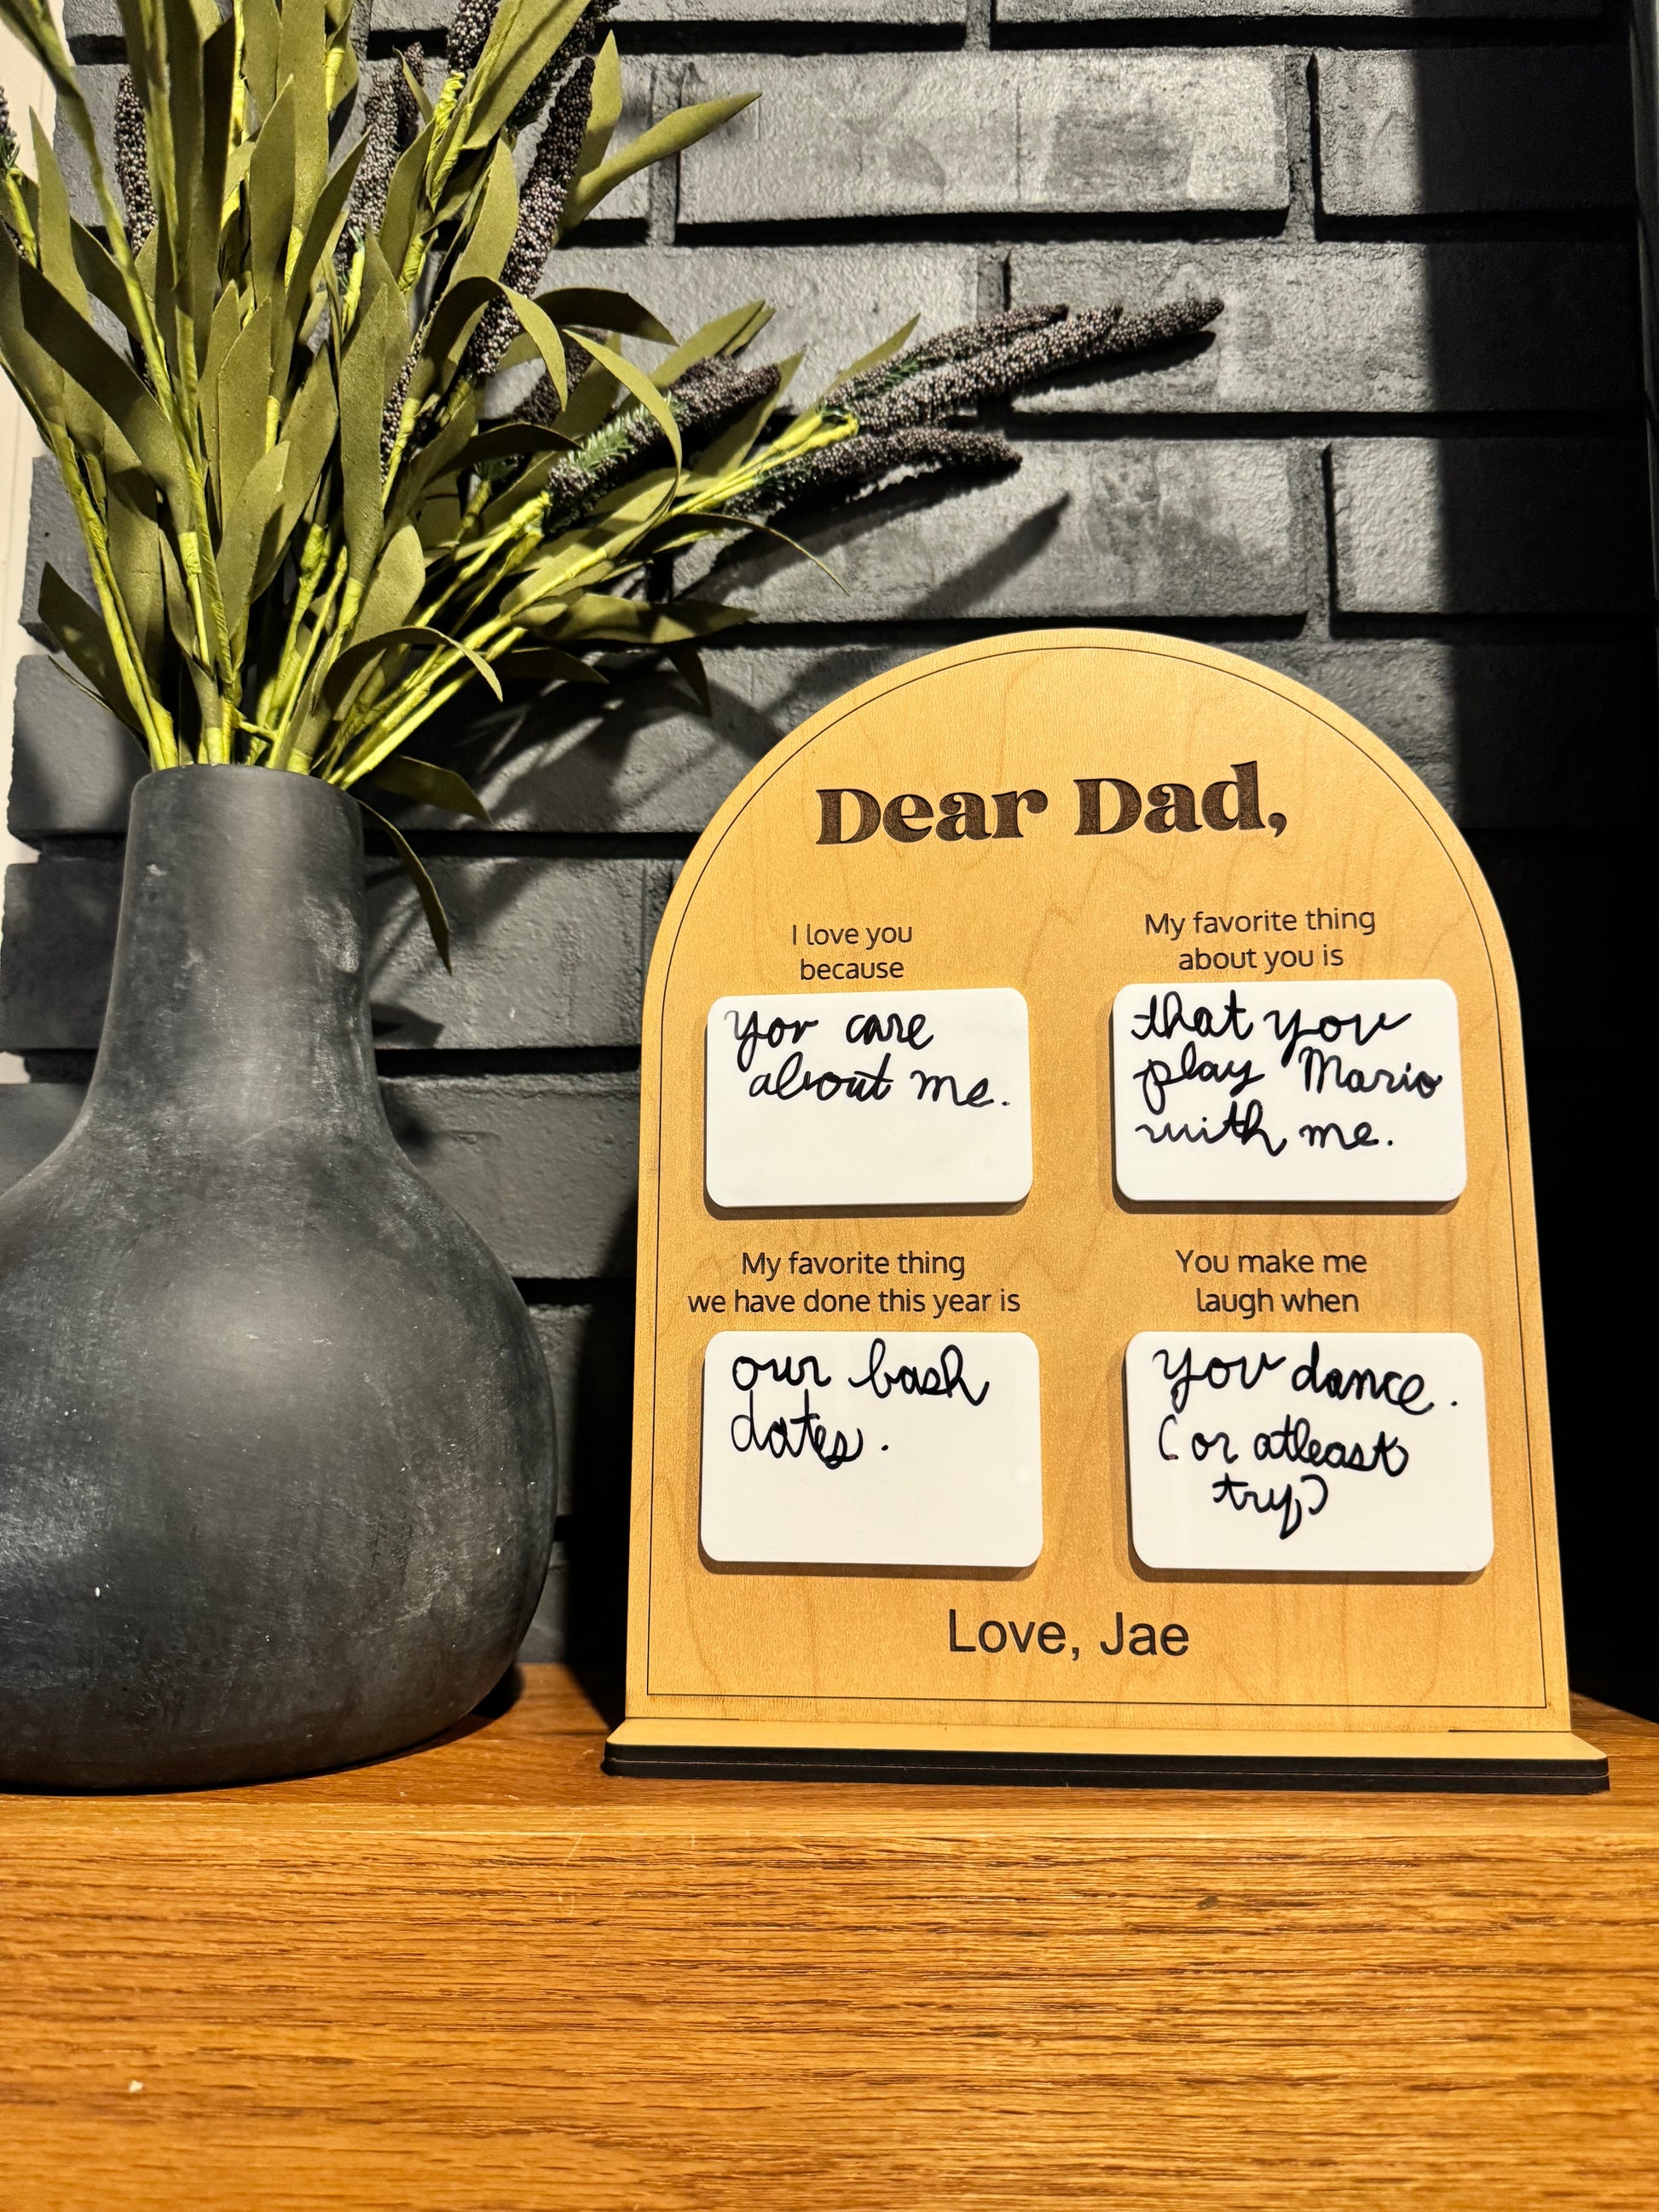 Dear Dad,
I love you
because
you care
about me.
My favorite thing
about you is
that you
play Mario
with me.
My favorite thing
we have done this year is
our bash
dates.
You make me
laugh when
you dance.
(or atleast
try)
Love, Jae